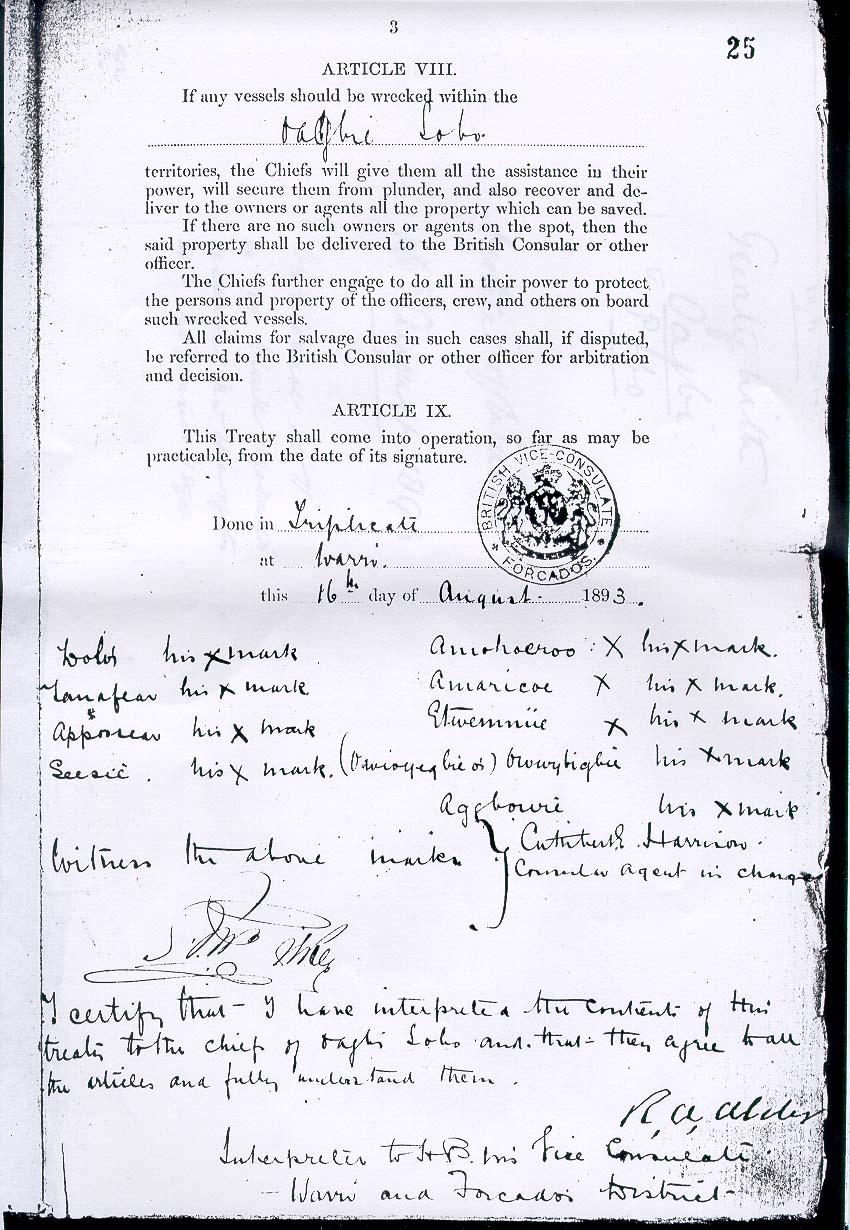 3
25
ARTICLE VIII.
If any vessels should be wrecked within the
Oagbi Sobo
territories, the Chiefs will give them all the assistance in their
power, will secure them from plunder, and also recover and de-
liver to the owners or agents all the property which can be saved.
If there are no such owners or agents on the spot, then the
said property shall be delivered to the British Consular or other
officer.
The Chiefs further engage to do all in their power to protect
the persons and property of the officers, crew, and others on board
such wrecked vessels.
All claims for salvage dues in such cases shall, if disputed,
be referred to the British Consular or other officer for arbitration
and decision.
ARTICLE IX.
This Treaty shall come into operation, so far as may be
practicable, from the date of its signature.
BRITISH VICE-CONSULATE
* FORCADOS. *
Done in Triplicate
at Warri.
this 16th day of August 1893.
his X mark
Amohoeroo X his X mark.
his X mark
Amaricoe X his X mark.
Appossear his X mark
Etwemniie X his X mark
Seesie. his X mark.
his X mark
Aggbowie his X mark
Witness the above marks
Cuthbert E. Harrison.
Consular Agent in charge
I certify that I have interpreted the contents of this
treaty to the chiefs of Oagbi Sobo and that they agree to all
the articles and fully understand them.
R. A. Alder
Interpreter to H.B.M's Vice Consulate
Warri and Forcados District